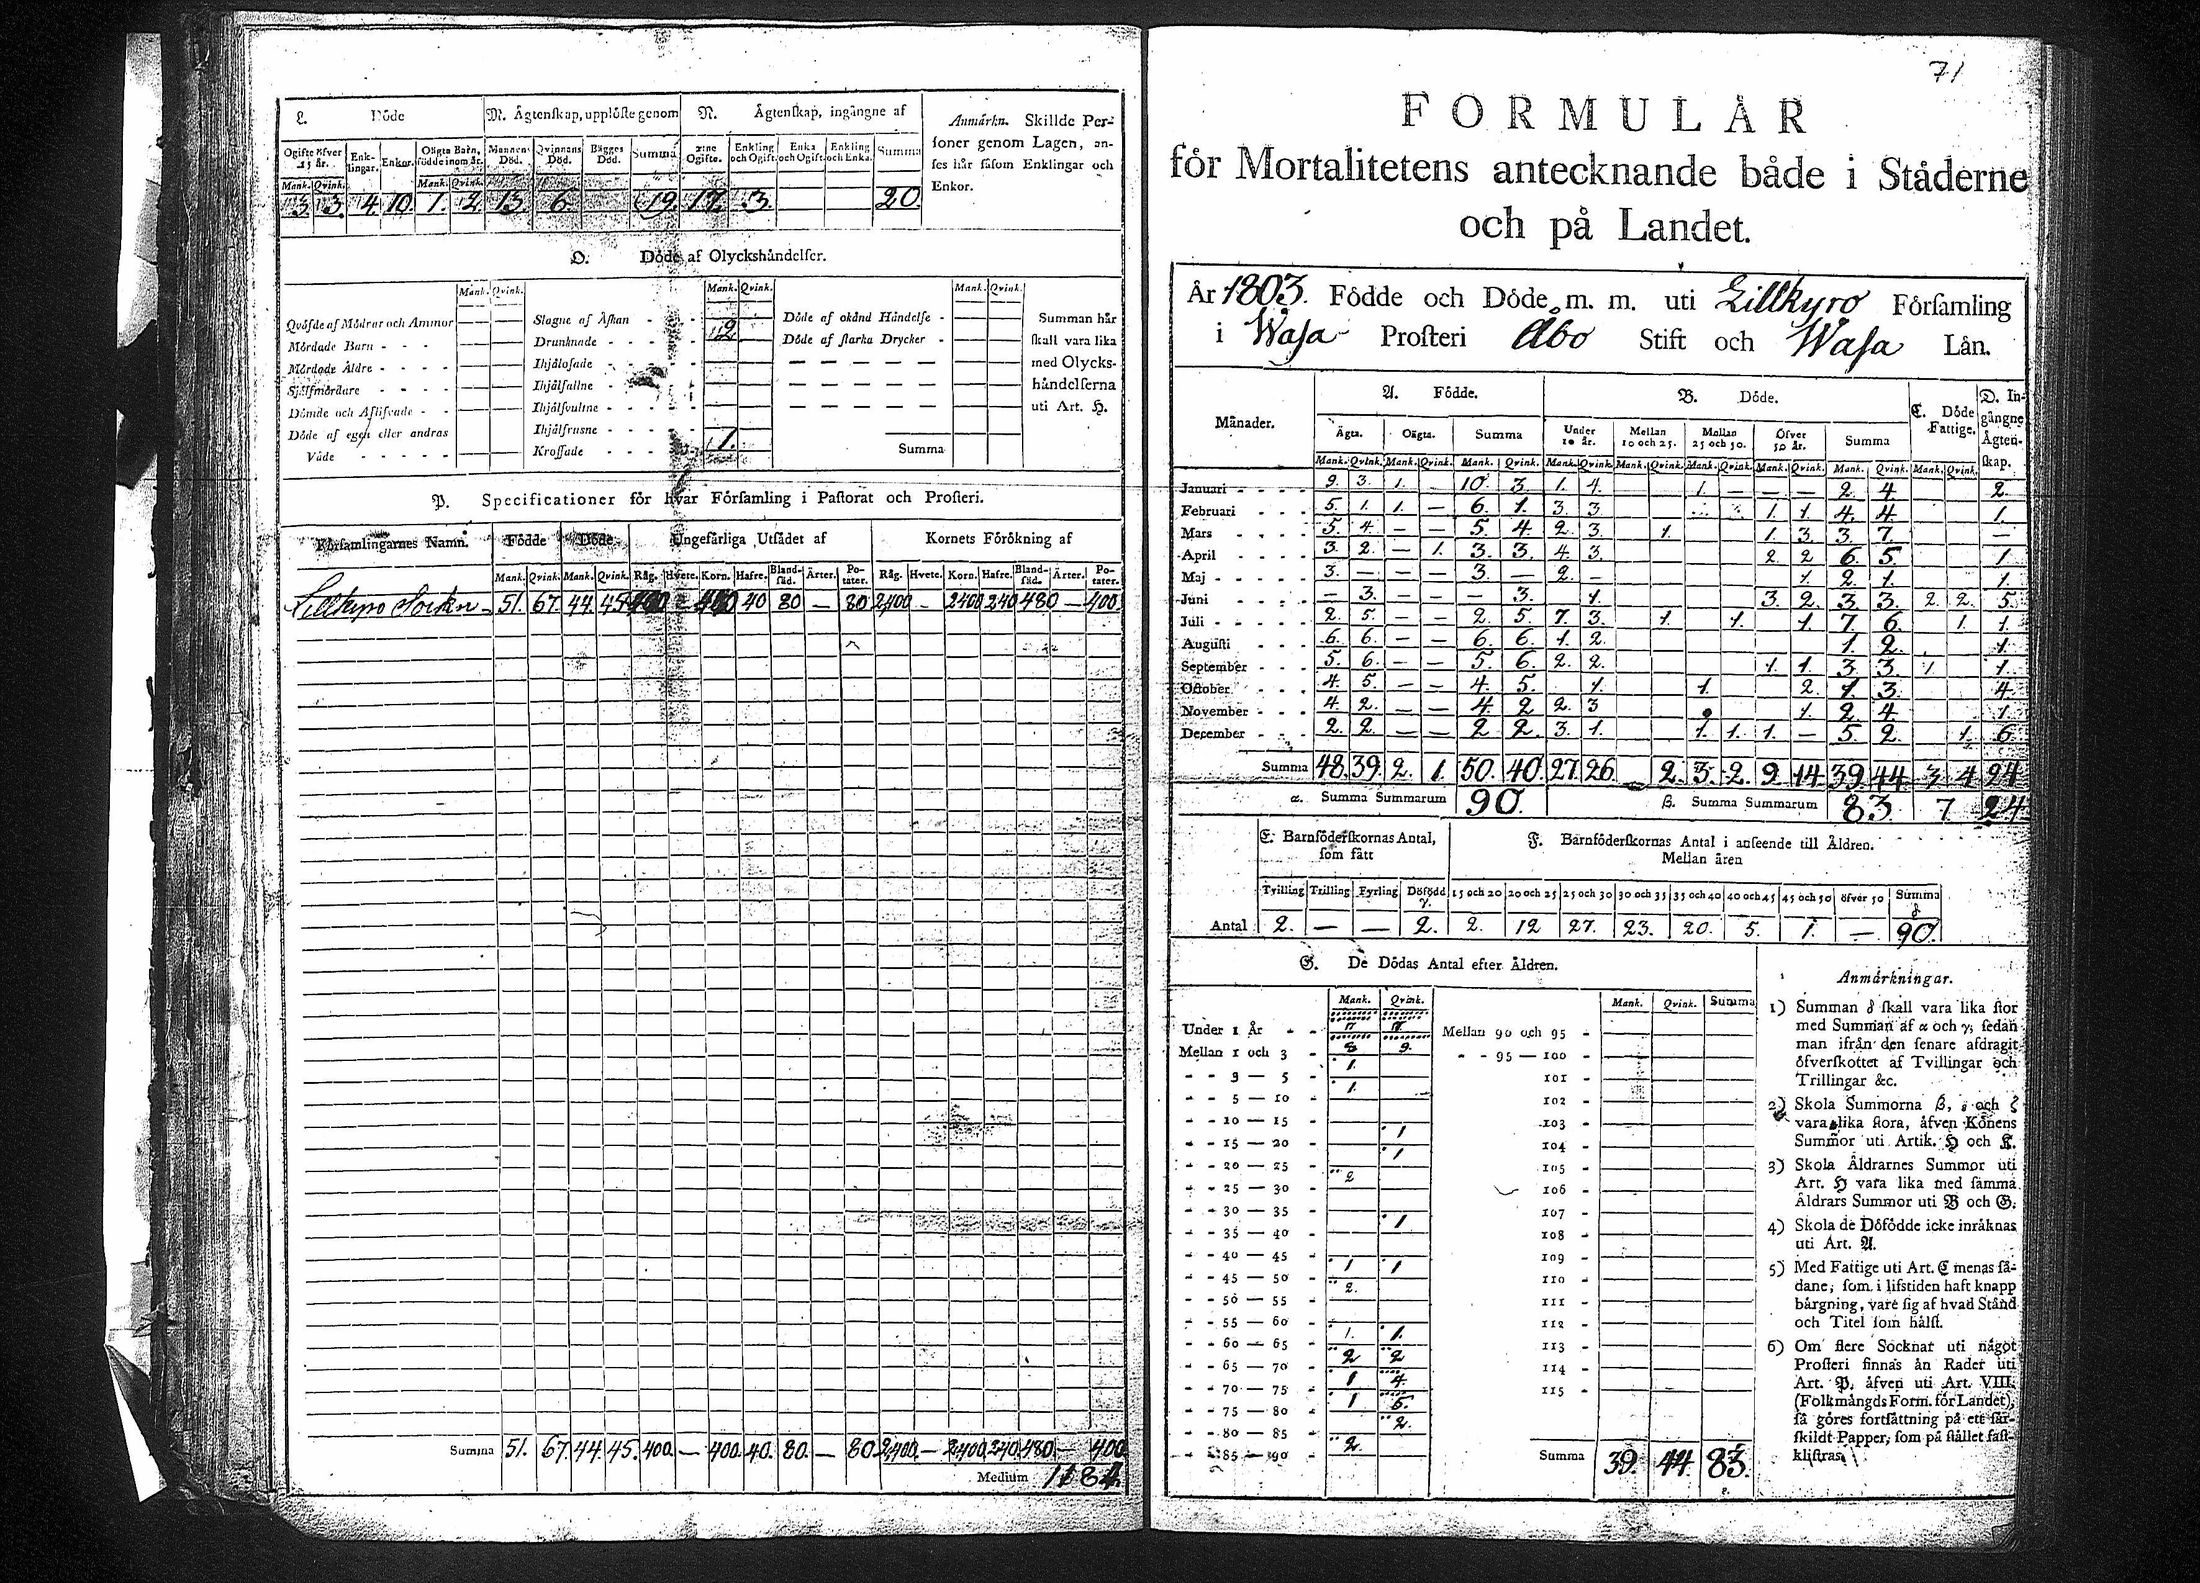 L. Döde
M. Ägtenskap, upplöste genom
N. Ägtenskap, ingångne af
Anmärkn. Skillde Per-
soner genom Lagen, an-
ses här såsom Enklingar och
Enkor.
Ogifte öfver 15 år. Enk-lingar. Enkor. Oägta Barn, födde inom år. Mannens Död. Qvinnans Död. Bägges Död. Summa Ogifte. Enkling och Ogift. Enka och Ogift. Enkling och Enka. Summa
Mank. Qvink. Mank. Qvink.
3. 3. 4. 10. 1. 2. 13. 6. 19. 17. 3. 20
O. Döde af Olyckshändelser.
Mank. Qvink. Mank. Qvink. Mank. Qvink.
Qväfde af Mödrar och Ammor — — Slagne af Åskan - - Döde af okänd Händelse - Summan här
Mördade Barn - - - Drunknade - - - - 2 Döde af starka Drycker - skall vara lika
Mördade Äldre - - - - Ihjälosade - - - - — — — — — med Olycks-
Sjelfmördare - - - - Ihjälfallne - - - - — — — — — händelserna
Dömde och Aflifvade - - Ihjälsvultne - - - - — — — — — uti Art. H.
Döde af egen eller andras Ihjälfrusne - - - -
Våde - - - - - Krossade - - - - 1. Summa
P. Specificationer för hvar Församling i Pastorat och Prosteri.
Församlingarnes Namn. Födde Döde. Ungefärliga Utsådet af Kornets Förökning af
Mank. Qvink. Mank. Qvink. Råg. Hvete. Korn. Hafre. Bland-säd. Ärter. Po-tater. Råg. Hvete. Korn. Hafre. Bland-säd. Ärter. Po-tater.
Lillkyro Sockn 51. 67. 44. 45. 400 — 400 40 80 — 80 2400 — 2400 240 480 — 400.
Summa 51. 67. 44. 45. 400. — 400. 40. 80. — 80. 2400. — 2400. 240. 480. — 400
Medium
71
FORMULÄR
för Mortalitetens antecknande både i Städerne
och på Landet.
År 1803. Födde och Döde m. m. uti Lillkyro Församling
i Wasa Prosteri Åbo Stift och Wasa Län.
Månader. A. Födde. B. Döde. C. Döde Fattige. D. In-gångne Ägten-skap.
Ägta. Oägta. Summa Under 10 år. Mellan 10 och 25. Mellan 25 och 50. Öfver 50 år. Summa
Mank. Qvink. Mank. Qvink. Mank. Qvink. Mank. Qvink. Mank. Qvink. Mank. Qvink. Mank. Qvink. Mank. Qvink. Mank. Qvink.
Januari - - - - 9. 3. 1. - 10. 3. 1. 4. 1. — — — 2. 4. 2.
Februari - - - 5. 1. 1. — 6. 1. 3. 3. 1. 1. 4. 4. 1.
Mars - - - - 5. 4. — — 5. 4. 2. 3. 1. 1. 3. 3. 7. —
April - - - - 3. 2. — 1. 3. 3. 4. 3. 2. 2. 6. 5. 1
Maj - - - - 3. — — — 3. — 2. — 1. 2. 1. 1.
Juni - - - - — 3. — — — 3. 1. 3. 2. 3. 3. 2. 2. 5.
Juli - - - - 2. 5. — — 2. 5. 7. 3. 1. 1. 1. 7. 6. 1. 1.
Augusti - - - 6. 6. — — 6. 6. 1. 2. 1. 2. 1.
September - - - 5. 6. — — 5. 6. 2. 2. 1. 1. 3. 3. 1 1
October - - - 4. 5. — — 4. 5. 1. 1. 2. 1. 3. 4.
November - - - 4. 2. — — 4. 2 2. 3 1. 2. 4. 1.
December - - - 2. 2. — — 2 2. 3. 1. 1. 1. 1. — 5. 2. 1. 6.
Summa 48. 39. 2. 1. 50. 40. 27. 26. — 2. 3. 2. 9. 14. 39. 44. 3. 4. 24
α. Summa Summarum 90. β. Summa Summarum 83. 7 24
E. Barnföderskornas Antal, som fått
F. Barnföderskornas Antal i anseende till Åldren.
Mellan åren
Tvilling Trilling Fyrling Döfödd γ. 15 och 20 20 och 25 25 och 30 30 och 35 35 och 40 40 och 45 45 och 50 öfver 50 Summa δ
Antal 2. — — 2. 2. 12 27. 23. 20. 5. 1. — 90.
G. De Dödas Antal efter Åldren.
Mank. Qvink. Mank. Qvink. Summa
Under 1 År - - 17 17. Mellan 90 och 95 -
Mellan 1 och 3 - 8 9. - - 95 — 100 -
- - 3 — 5 - 1. 101 -
- - 5 — 10 - 1. 102 -
- - 10 — 15 - 103 -
- - 15 — 20 - 1 104 -
- - 20 — 25 - 1 105 -
- - 25 — 30 - 2 106 -
- - 30 — 35 - 107 -
- - 35 — 40 - 1 108 -
- - 40 — 45 - 109 -
- - 45 — 50 - 1 1 110 -
- - 50 — 55 - 2. 111 -
- - 55 — 60 - 112 -
- - 60 — 65 - 1. 1. 113 -
- - 65 — 70 - 2 2 114 -
- - 70 — 75 - 1 4. 115 -
- - 75 — 80 - 1 5.
- - 80 — 85 - 2.
- - 85 — 90 - 2. Summa 39. 44. 83.
Anmärkningar.
1) Summan δ skall vara lika stor
med Summan af α och γ, sedan
man ifrån den senare afdragit
öfverskottet af Tvillingar och
Trillingar &c.
2) Skola Summorna β, ε och ζ
vara lika stora, äfven Könens
Summor uti Artik. H och K.
3) Skola Åldrarnes Summor uti
Art. H vara lika med samma
Åldrars Summor uti B och G.
4) Skola de Döfödde icke inräknas
uti Art. A.
5) Med Fattige uti Art. C menas så-
dane, som i lifstiden haft knapp
bärgning, vare sig af hvad Stånd
och Titel som hälst.
6) Om flere Socknar uti något
Prosteri finnas än Rader uti
Art. P, äfven uti Art. VIII.
(Folkmängds Form. för Landet),
så göres fortsättning på ett sär-
skildt Papper, som på stället fast-
klistras.